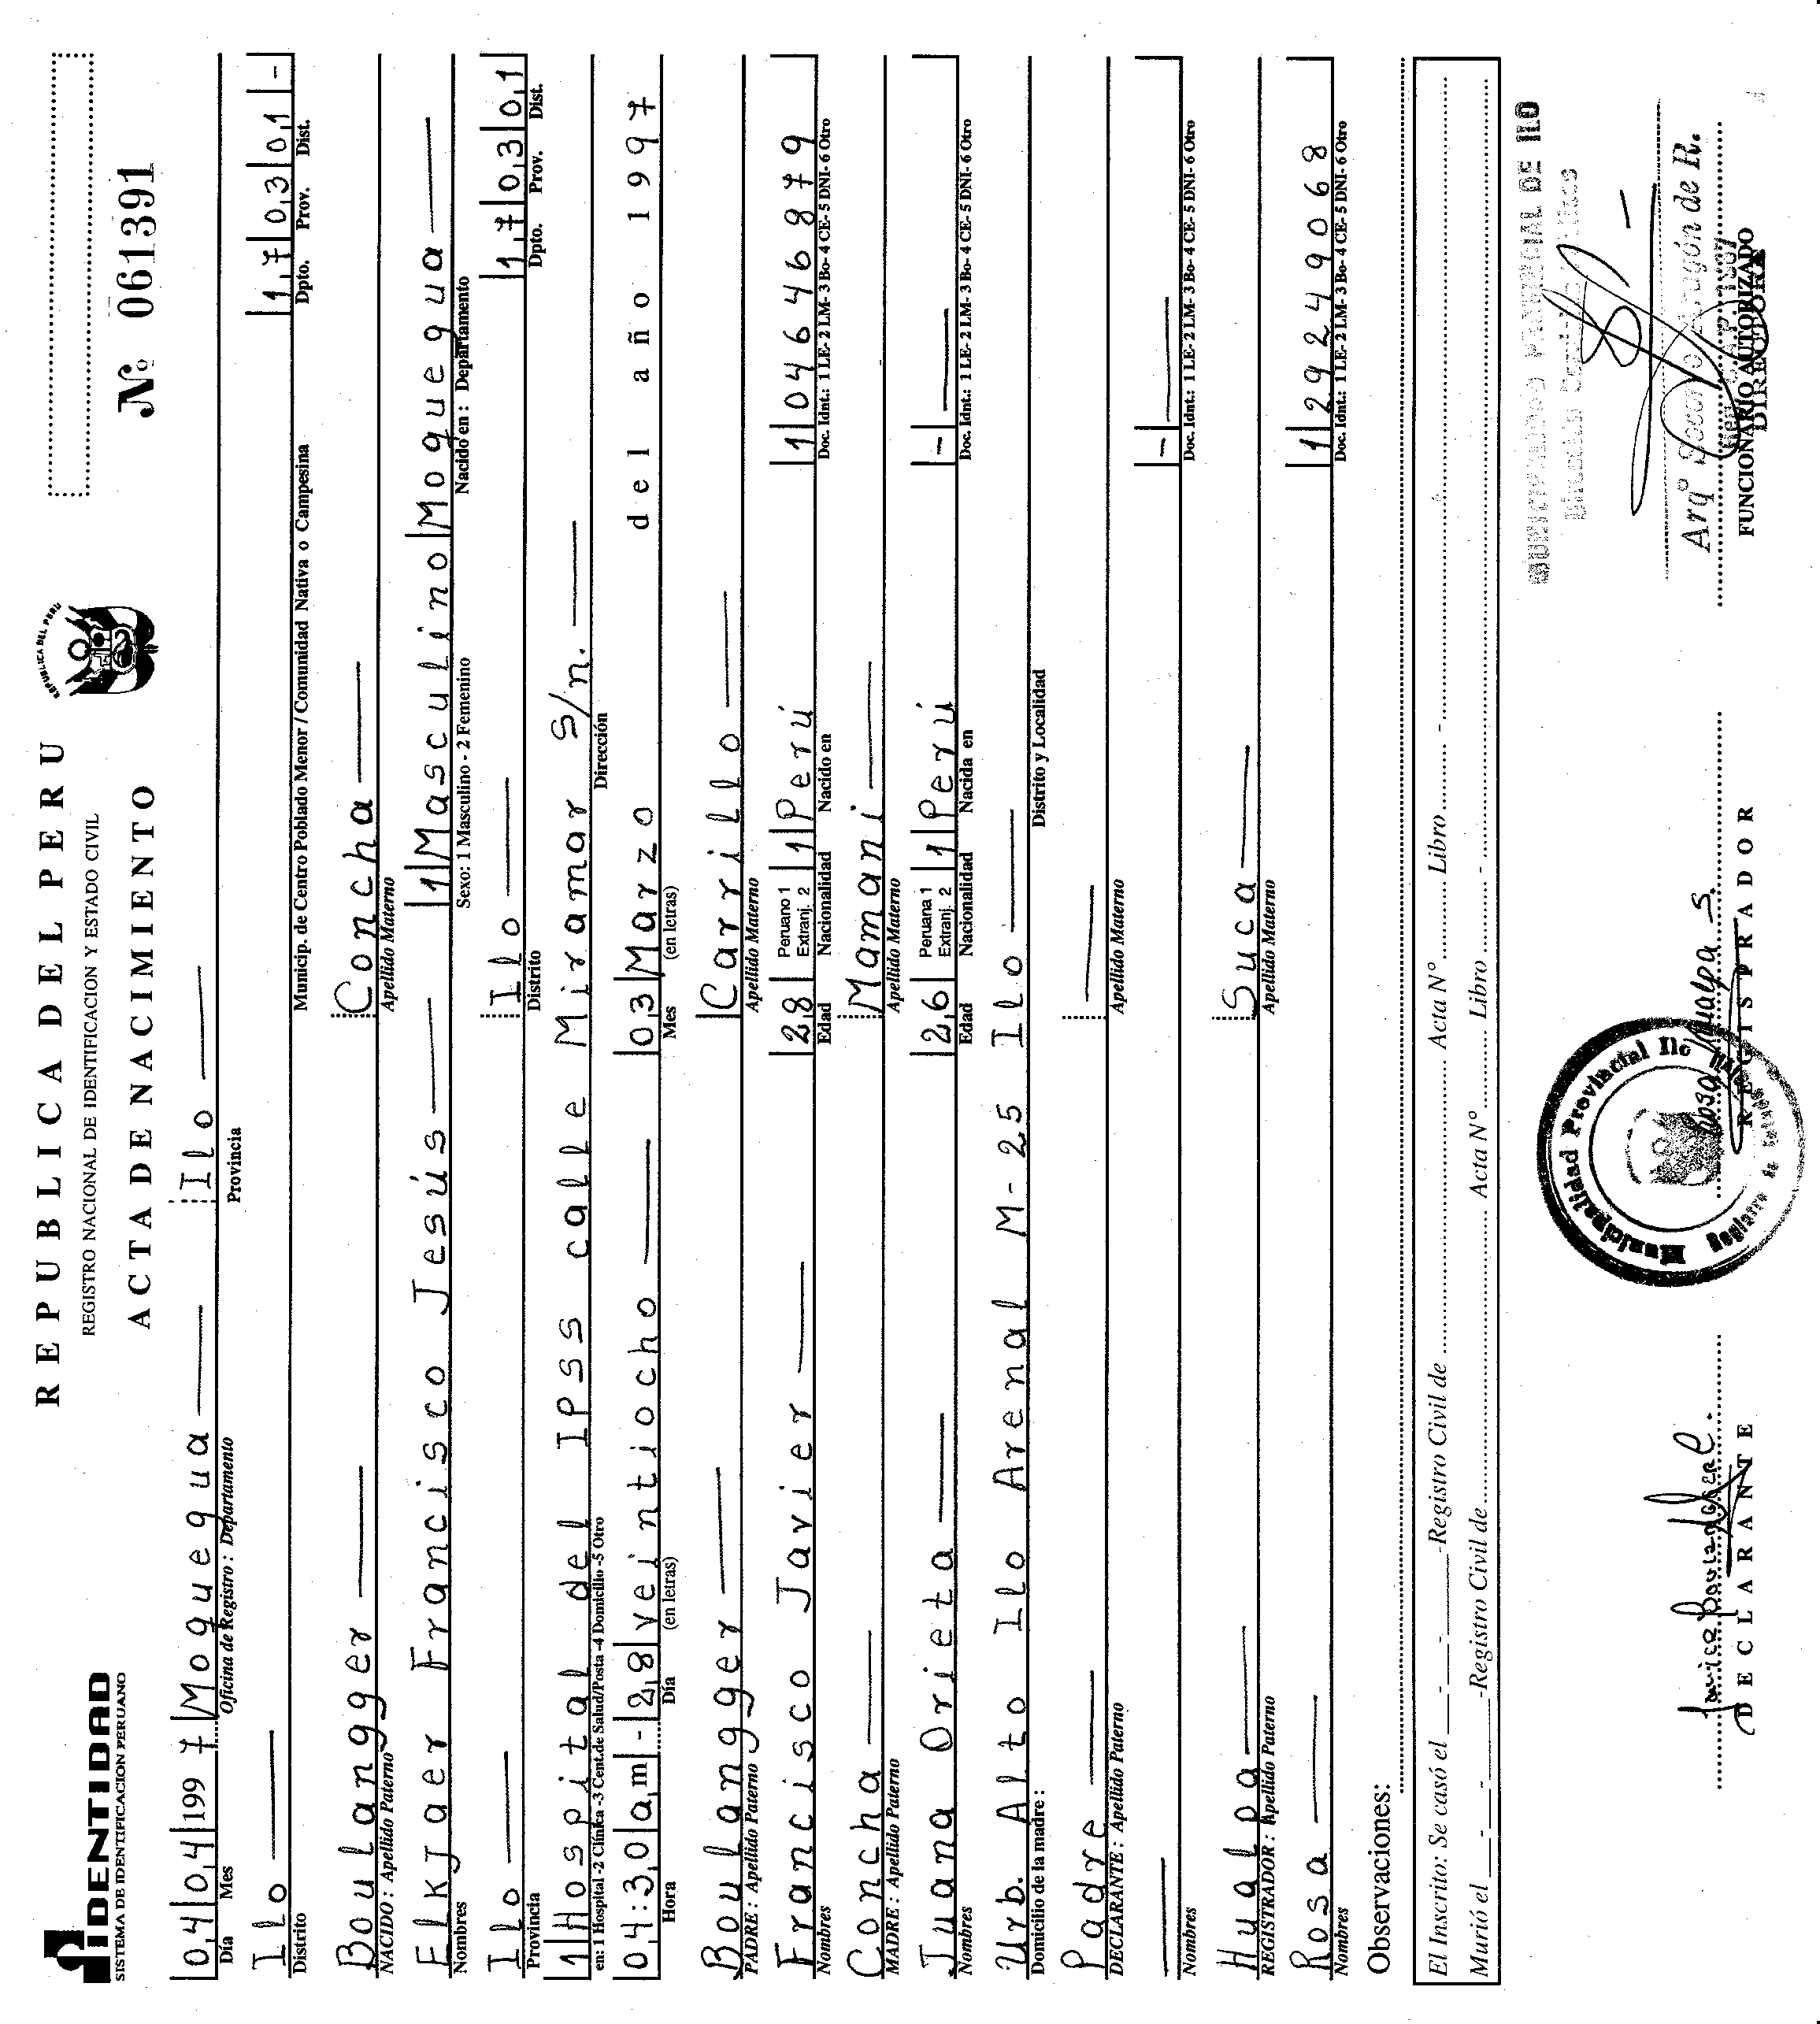 IDENTIDAD
SISTEMA DE IDENTIFICACION PERUANO
REPUBLICA DEL PERU
REGISTRO NACIONAL DE IDENTIFICACION Y ESTADO CIVIL
ACTA DE NACIMIENTO
REPUBLICA DEL PERU
Nº 061391
04 04 1997 Moquegua Ilo
Día Mes Oficina de Registro : Departamento Provincia
Ilo 17 03 01 -
Distrito Municip. de Centro Poblado Menor / Comunidad Nativa o Campesina Dpto. Prov. Dist.
Boulangger Concha
NACIDO : Apellido Paterno Apellido Materno
Elkjaer Francisco Jesús 1 Masculino Moquegua
Nombres Sexo: 1 Masculino - 2 Femenino Nacido en : Departamento
Ilo Ilo 17 03 01
Provincia Distrito Dpto. Prov. Dist.
1 Hospital del IPSS calle Miramar S/n.
en: 1 Hospital -2 Clínica -3 Cent.de Salud/Posta -4 Domicilio -5 Otro Dirección
04:30 am - 28 veintiocho 03 Marzo del año 1997
Hora Día (en letras) Mes (en letras)
Boulangger Carrillo
PADRE : Apellido Paterno Apellido Materno
Francisco Javier 28 Peruano 1 Extranj. 2 1 Perú 1 04646879
Nombres Edad Nacionalidad Nacido en Doc. Idnt.: 1 LE- 2 LM- 3 Bo- 4 CE- 5 DNI- 6 Otro
Concha Mamani
MADRE : Apellido Paterno Apellido Materno
Juana Orieta 26 Peruana 1 Extranj. 2 1 Perú -
Nombres Edad Nacionalidad Nacida en Doc. Idnt.: 1 LE- 2 LM- 3 Bo- 4 CE- 5 DNI- 6 Otro
Urb. Alto Ilo Arenal M-25 Ilo
Domicilio de la madre : Distrito y Localidad
Padre
DECLARANTE : Apellido Paterno Apellido Materno
-
Nombres Doc. Idnt.: 1 LE- 2 LM- 3 Bo- 4 CE- 5 DNI- 6 Otro
Hualpa Suca
REGISTRADOR : Apellido Paterno Apellido Materno
Rosa 1 29249068
Nombres Doc. Idnt.: 1 LE- 2 LM- 3 Bo- 4 CE- 5 DNI- 6 Otro
Observaciones:
El Inscrito: Se casó el - - -Registro Civil de Acta Nº Libro -
Murió el - - -Registro Civil de Acta Nº Libro -
MUNICIPALIDAD PROVINCIAL DE ILO
Municipalidad Provincial Ilo
Rosa Hualpa S
Arqº Aragón de R.
DECLARANTE
REGISTRADOR
FUNCIONARIO AUTORIZADO
DIRECTORA